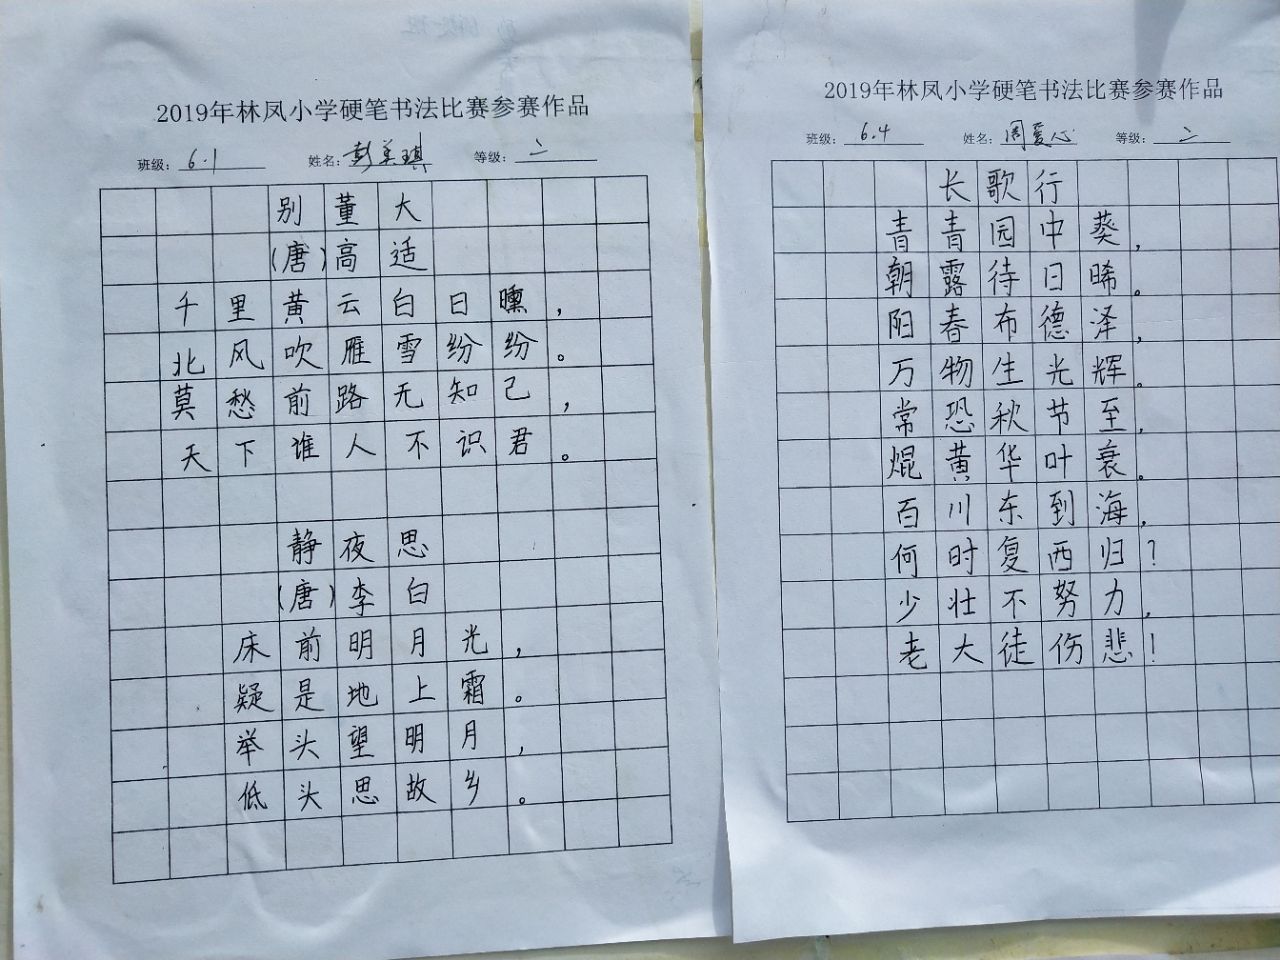 2019年林凤小学硬笔书法比赛参赛作品
班级：6.1 姓名：彭美琪 等级：二
别董大
（唐）高适
千里黄云白日曛，
北风吹雁雪纷纷。
莫愁前路无知己，
天下谁人不识君。
静夜思
（唐）李白
床前明月光，
疑是地上霜。
举头望明月，
低头思故乡。
2019年林凤小学硬笔书法比赛参赛作品
班级：6.4 姓名：周爱心 等级：二
长歌行
青青园中葵，
朝露待日晞。
阳春布德泽，
万物生光辉。
常恐秋节至，
焜黄华叶衰。
百川东到海，
何时复西归？
少壮不努力，
老大徒伤悲！